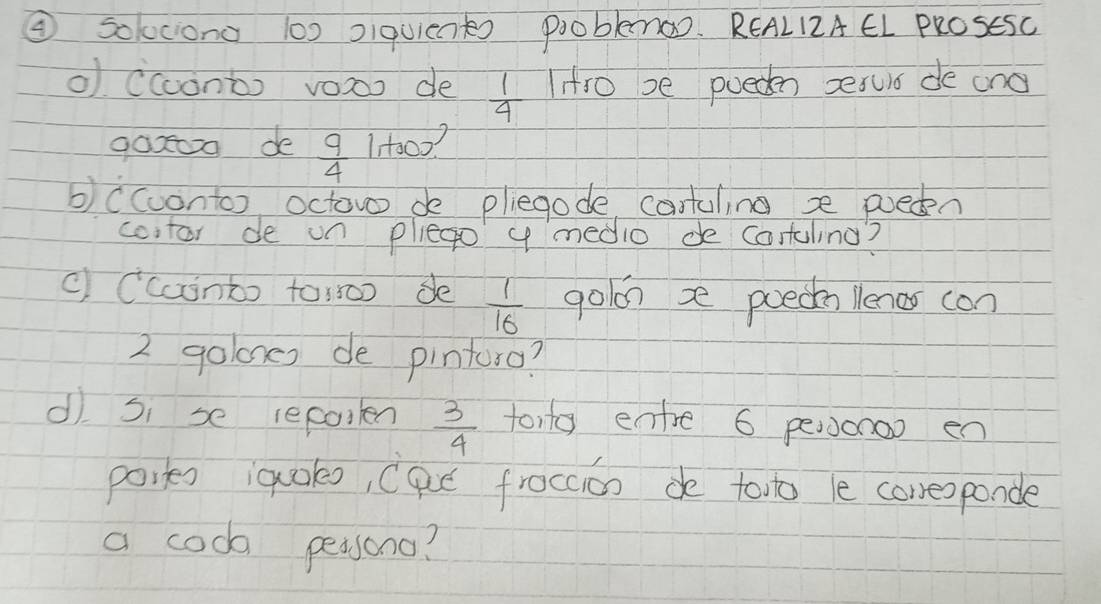 ④ Soluciona los siguientes problemas. REALIZA EL PROSESC
a) ¿Cuántos vasos de 1/4 litro se pueden servir de una
gaseosa de 9/4 litros?
b) ¿Cuántos octavos de pliego de cartulina se pueden
cortar de un pliego y medio de cartulina?
c) ¿Cuántos tarros de 1/16 galón se pueden llenar con
2 galones de pintura?
d) Si se reparten 3/4 torta entre 6 personas en
partes iguales, ¿Qué fracción de torta le corresponde
a cada persona?